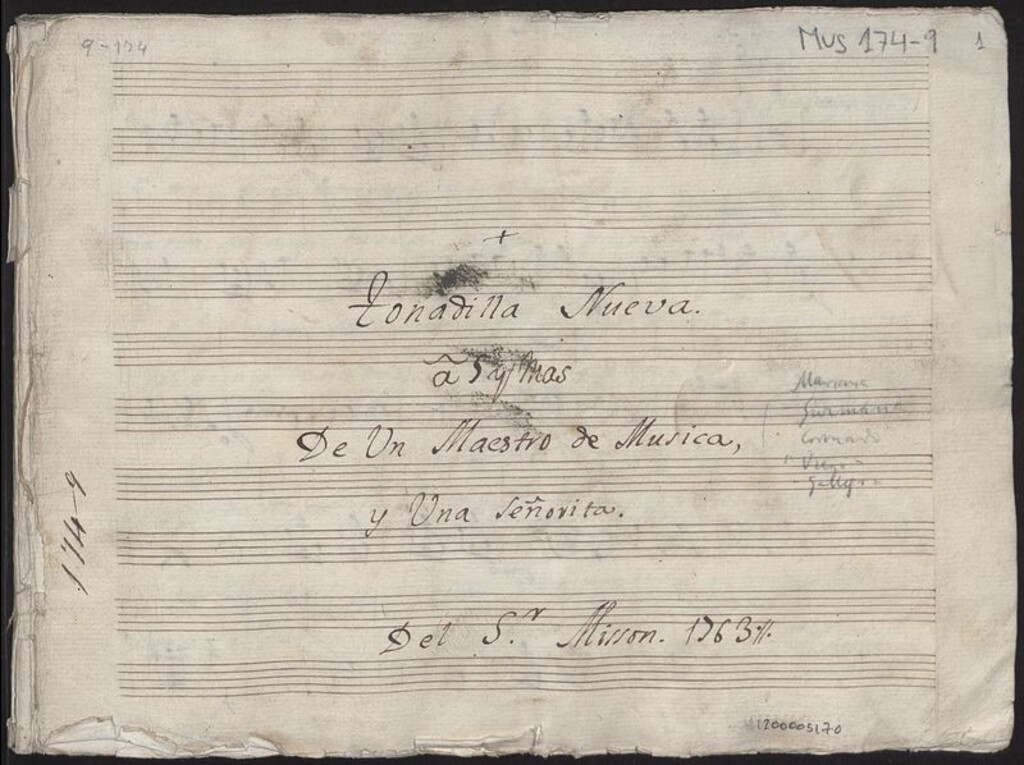 9-174
Mus 174-9
1
+
Tonadilla Nueva.
â 5 y Mas
De Un Maestro de Musica,
y Una Señorita.
Mariana
Guzmana
Coronado
Gallego
174-9
Del S.r Misson. 1763.
1200005170